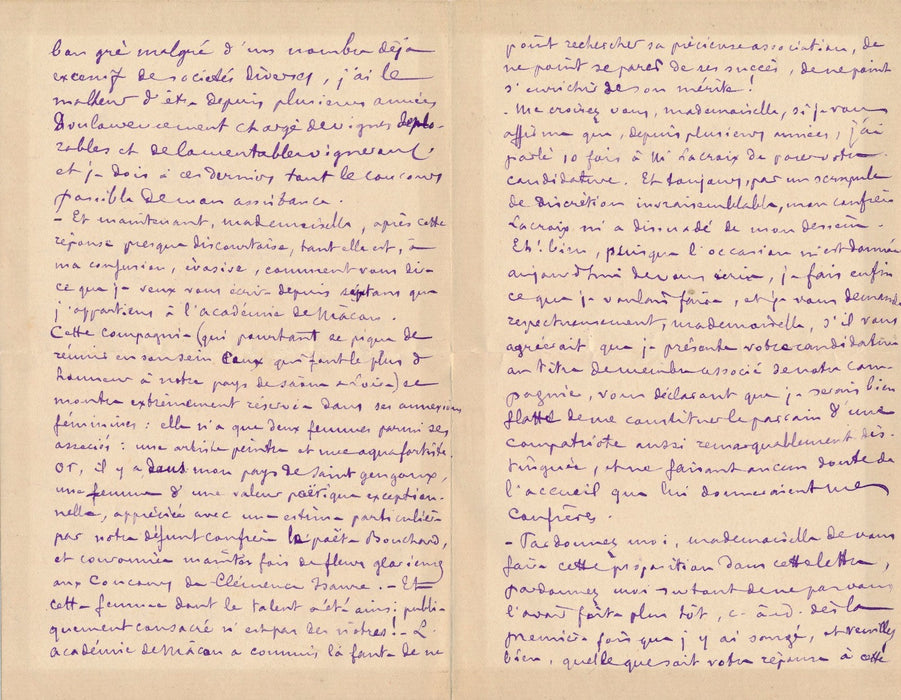 bon gré malgré d'un nombre déjà
excessif de sociétés diverses, j'ai le
malheur d'être depuis plusieurs années
douloureusement chargé de vignes déplo-
rables et de lamentables vignerons
et je dois à ces derniers tout le concours
possible de mon assistance.
- Et maintenant, mademoiselle, après cette
réponse presque discourtoise, tant elle est, à
ma confusion, évasive, comment vous dire
ce que je veux vous écrire depuis sept ans que
j'appartiens à l'académie de Mâcon.
Cette compagnie (qui pourtant se pique de
réunir en son sein ceux qui font le plus d'
honneur à notre pays de Saône et Loire) se
montre extrêmement réservée dans ses annexions
féminines : elle n'a que deux femmes parmi ses
associés : une artiste peintre et une aquafortiste.
Or, il y a dans mon pays de Saint Gengoux,
une femme d'une valeur poëtique exception-
nelle, appréciée avec une estime particulière
par notre défunt confrère le poëte Bouchard,
et couronnée maintes fois de fleurs glorieuses
aux Concours de Clémence Isaure. - Et
cette femme dont le talent a été ainsi publi-
quement consacré n'est pas des nôtres ! - L'
académie de Mâcon a commis la faute de ne
point rechercher sa précieuse association, de
ne point se parer de ses succès, de ne point
s'enrichir de son mérite !
- Me croirez vous, mademoiselle, si je vous
affirme que, depuis plusieurs années, j'ai
parlé 10 fois à M. Lacroix de poser votre
candidature. Et toujours, par un scrupule
de discrétion invraisemblable, mon confrère
Lacroix m'a dissuadé de mon dessein.
Eh ! bien, puisque l'occasion m'est donnée
aujourd'hui de vous écrire, je fais enfin
ce que je voulais faire, et je vous demande
respectueusement, mademoiselle, s'il vous
agréerait que je présente votre candidature
au titre de membre associé de notre com-
pagnie, vous déclarant que je serais bien
flatté de me constituer le parrain d'une
compatriote aussi remarquablement dis-
tinguée, et ne faisant aucun doute de
l'accueil que lui donneraient mes
confrères.
- Pardonnez moi, mademoiselle de vous
faire cette proposition dans cette lettre,
pardonnez moi surtout de ne pas vous
l'avoir faite plus tôt, c. à. d. dès la
première fois que j'y ai songé, et veuillez
bien, quelle que soit votre réponse à cette